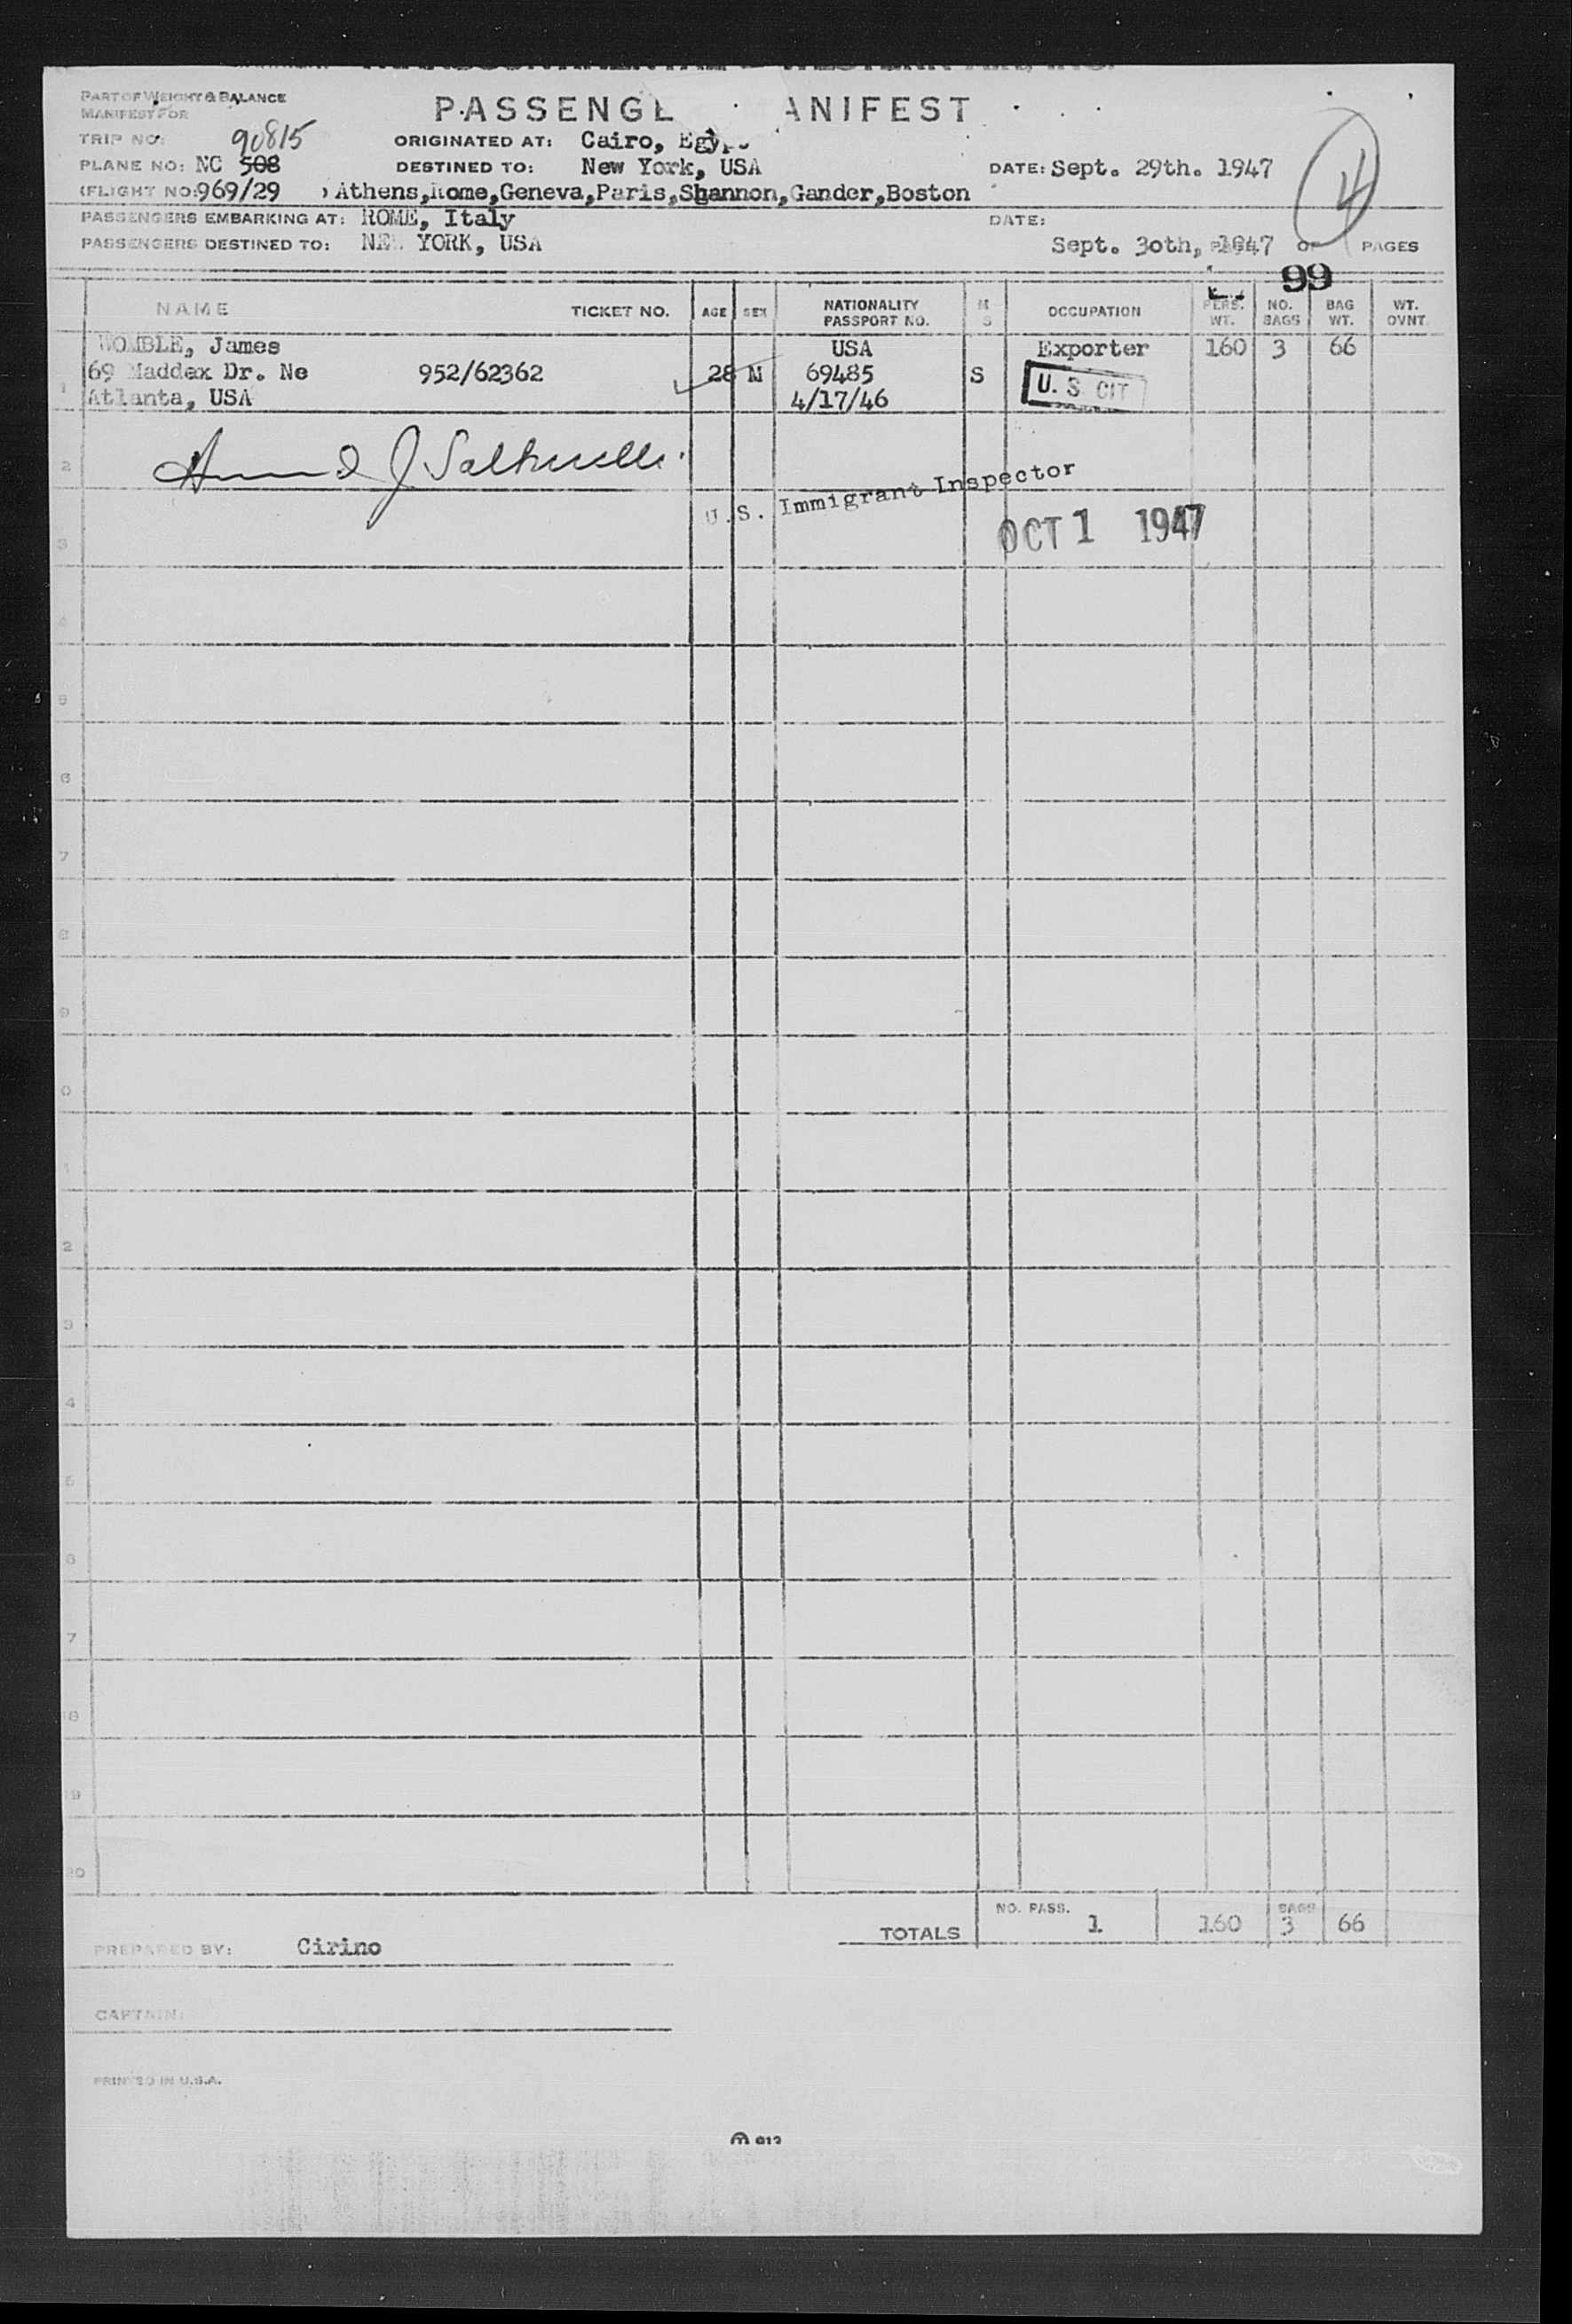 PART OF WEIGHT & BALANCE
MANIFEST FOR
PASSENGE ANIFEST
TRIP NO: 90815 ORIGINATED AT: Cairo, Egyp
PLANE NO: NC 508 DESTINED TO: New York, USA DATE: Sept. 29th. 1947
(FLIGHT NO: 969/29 ) Athens,Rome,Geneva,Paris,Shannon,Gander,Boston
PASSENGERS EMBARKING AT: ROME, Italy DATE:
PASSENGERS DESTINED TO: NEW YORK, USA Sept. 30th, 1947 OF PAGES
4
99
NAME TICKET NO. AGE SEX NATIONALITY PASSPORT NO. M S OCCUPATION PERS. WT. NO. BAGS BAG WT. WT. OVNT.
WOMBLE, James USA Exporter 160 3 66
1 69 Maddox Dr. Ne 952/62362 28 M 69485 S U. S. CIT
Atlanta, USA 4/17/46
2
U.S. Immigrant Inspector
3 OCT 1 1947
4
5
6
7
8
9
0
1
2
3
4
5
6
7
18
19
20
TOTALS NO. PASS. 1 160 BAGS 3 66
PREPARED BY: Cirino
CAPTAIN:
PRINTED IN U.S.A.